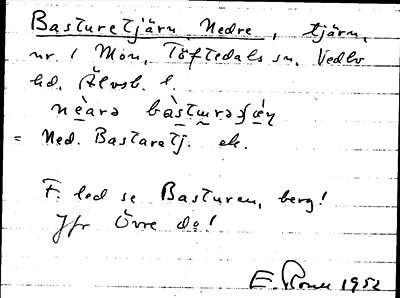 Basturetjärn, Nedre, tjärn,
nr. 1 Mon, Töftedals sn. Vedbo
hd. Älvsb. l.
nèarə bàsturəʃæ̀ɳ
= Ned. Bastaretj. ek.
F. led se Basturen, berg!
Jfr Övre do!
E. 1952